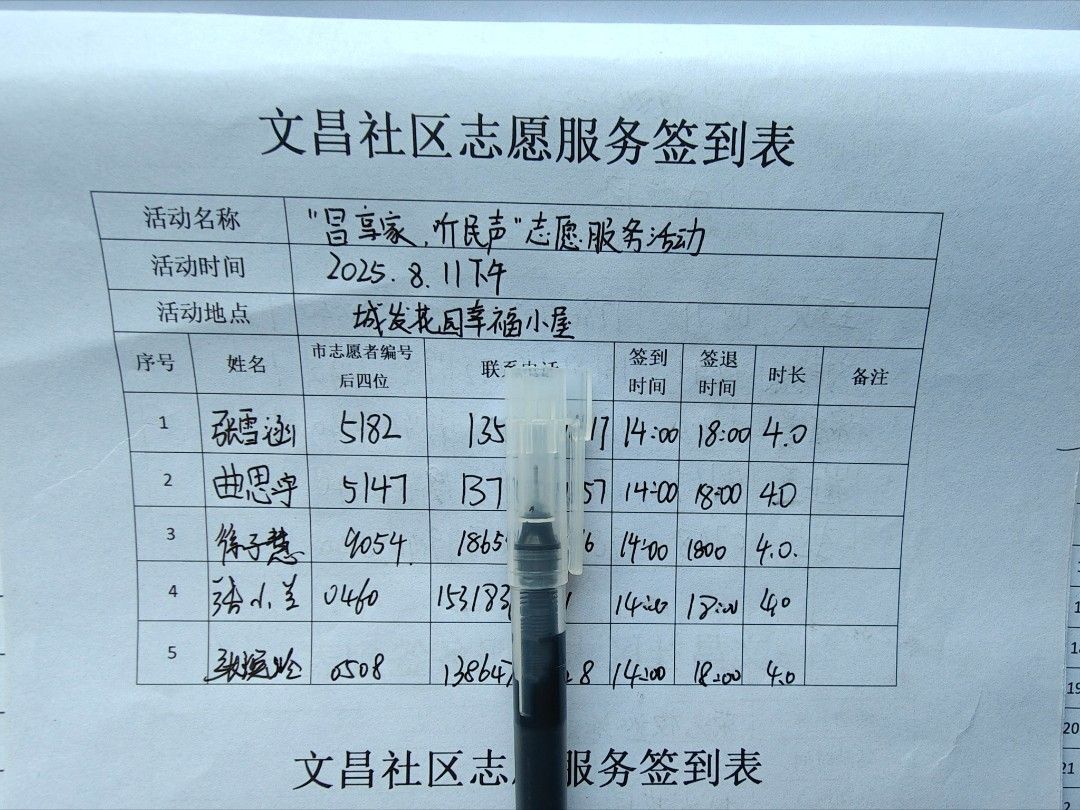 文昌社区志愿服务签到表
活动名称 "昌享家,听民声"志愿服务活动
活动时间 2025.8.11下午
活动地点 城发花园幸福小屋
序号 姓名 市志愿者编号后四位 联系电话 签到时间 签退时间 时长 备注
1 张雪涵 5182 135 17 14:00 18:00 4.0
2 曲思宇 5147 137 57 14:00 18:00 4.0
3 徐子慧 9054 1865 6 14:00 1800 4.0.
4 张小兰 0460 153183 14:00 18:00 4.0
5 0508 13864 8 14:00 18:00 4.0
文昌社区志 服务签到表
19
20
21